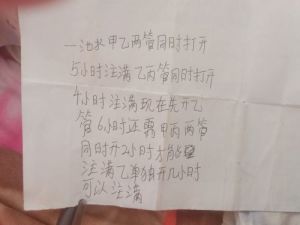 一池水甲乙两管同时打开
5小时注满乙丙管同时打开
4小时注满现在先开乙
管6小时还需甲丙两管
同时开2小时才能
注满乙单独开几小时
可以注满